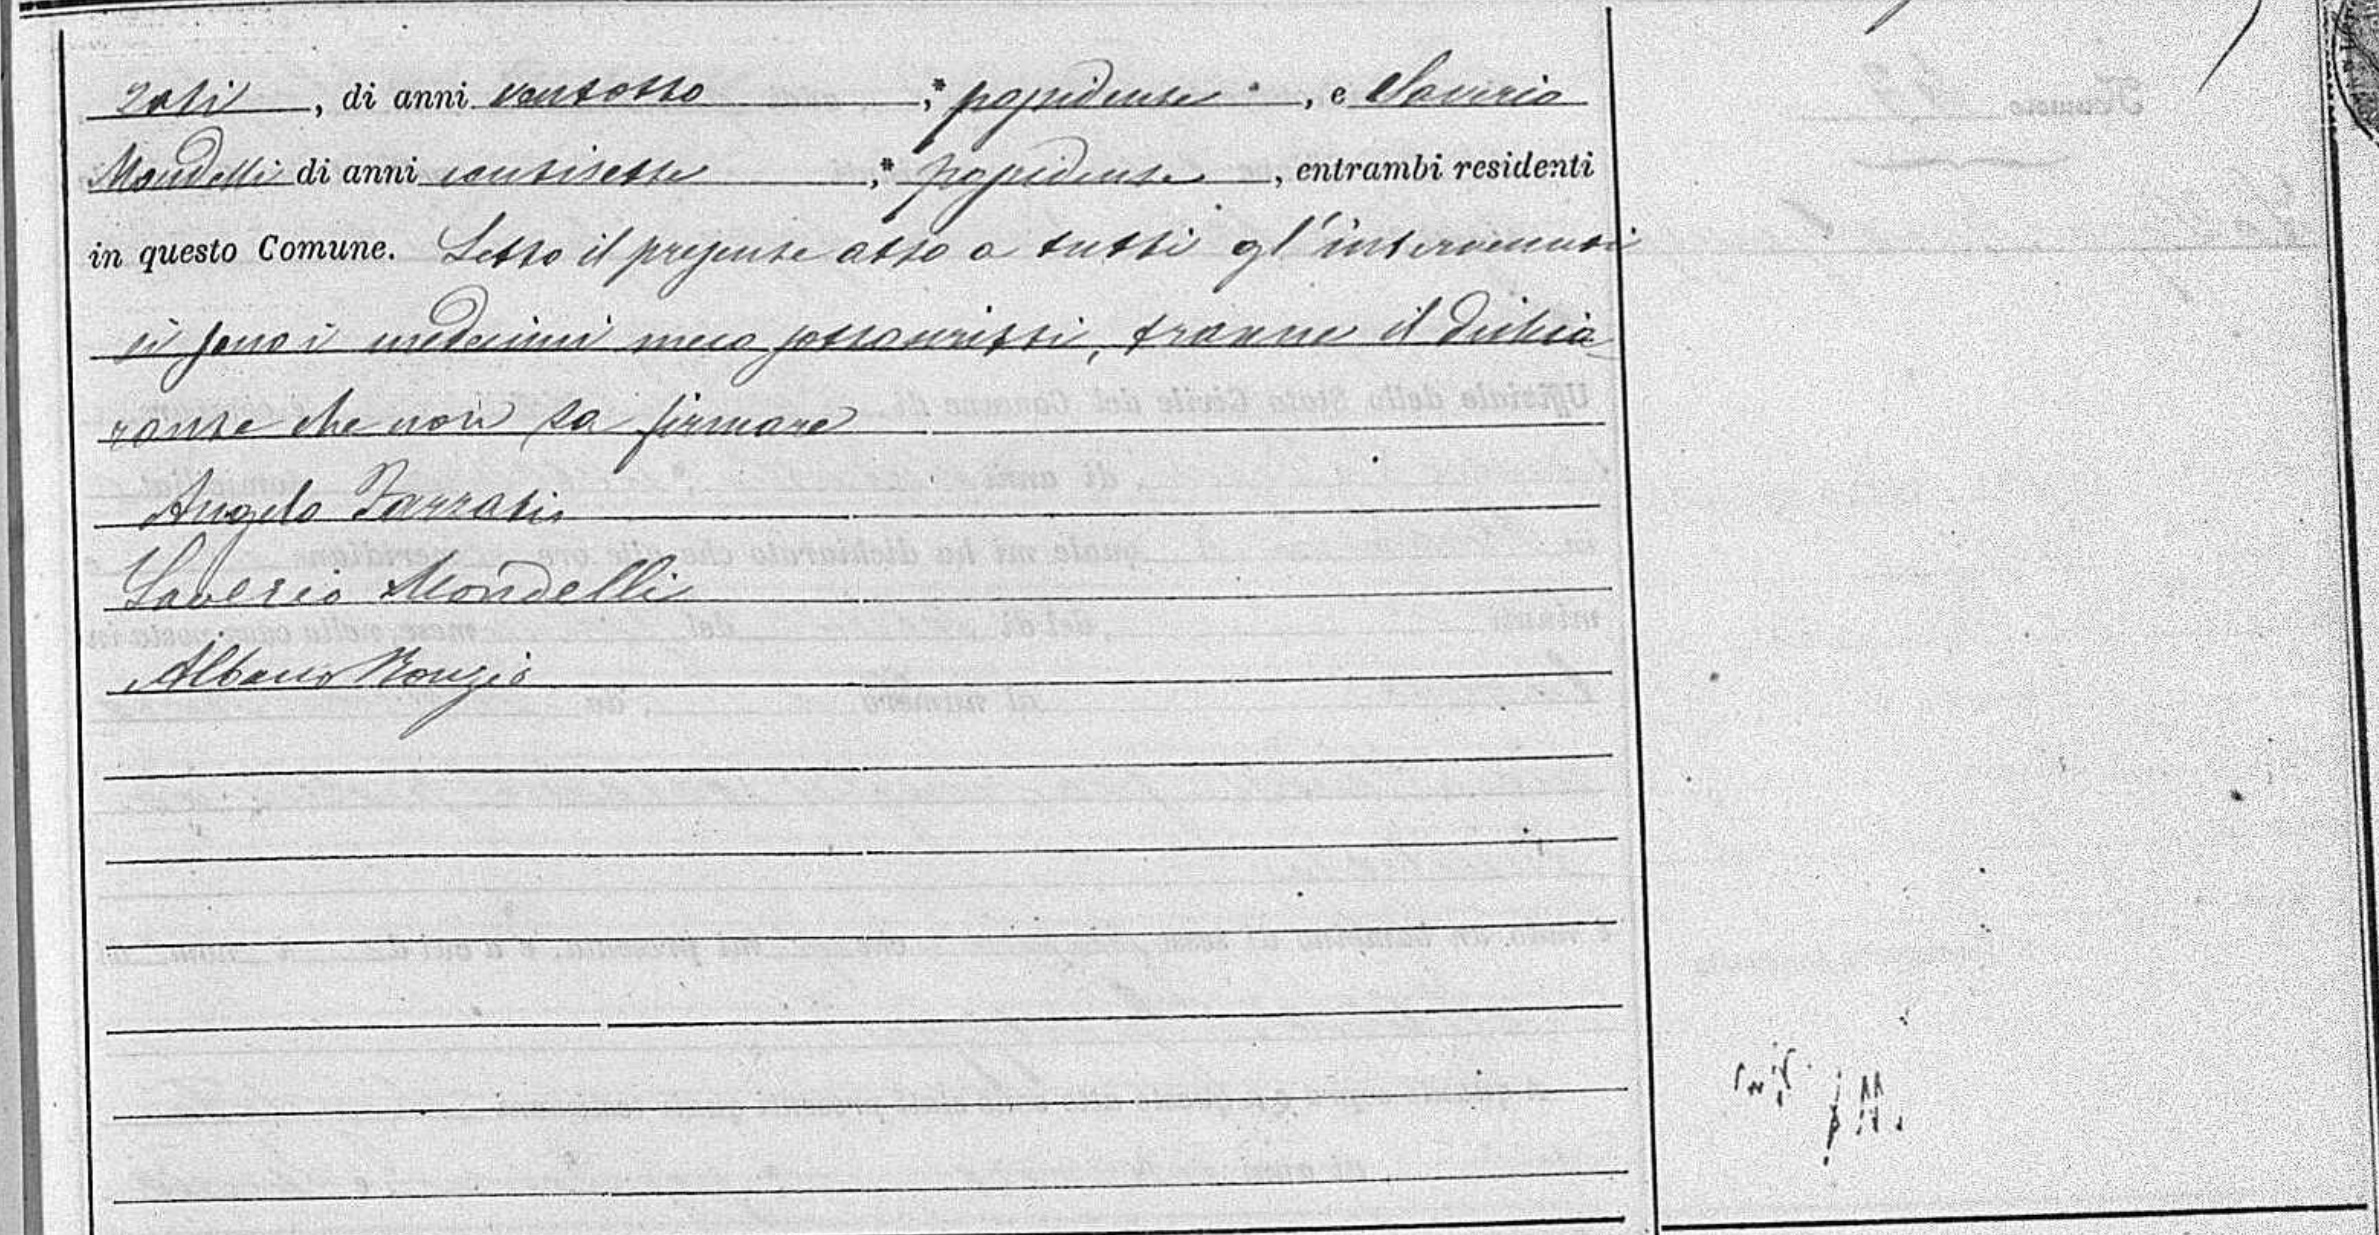 zati, di anni ventotto, possidente, e Saverio
Mondelli di anni ventisette, possidente, entrambi residenti
in questo Comune. Letto il presente atto a tutti gl'intervenuti
si sono i medesimi meco sottoscritti, tranne il dichia
rante che non sa firmare
Angelo
Saverio Mondelli
Albano